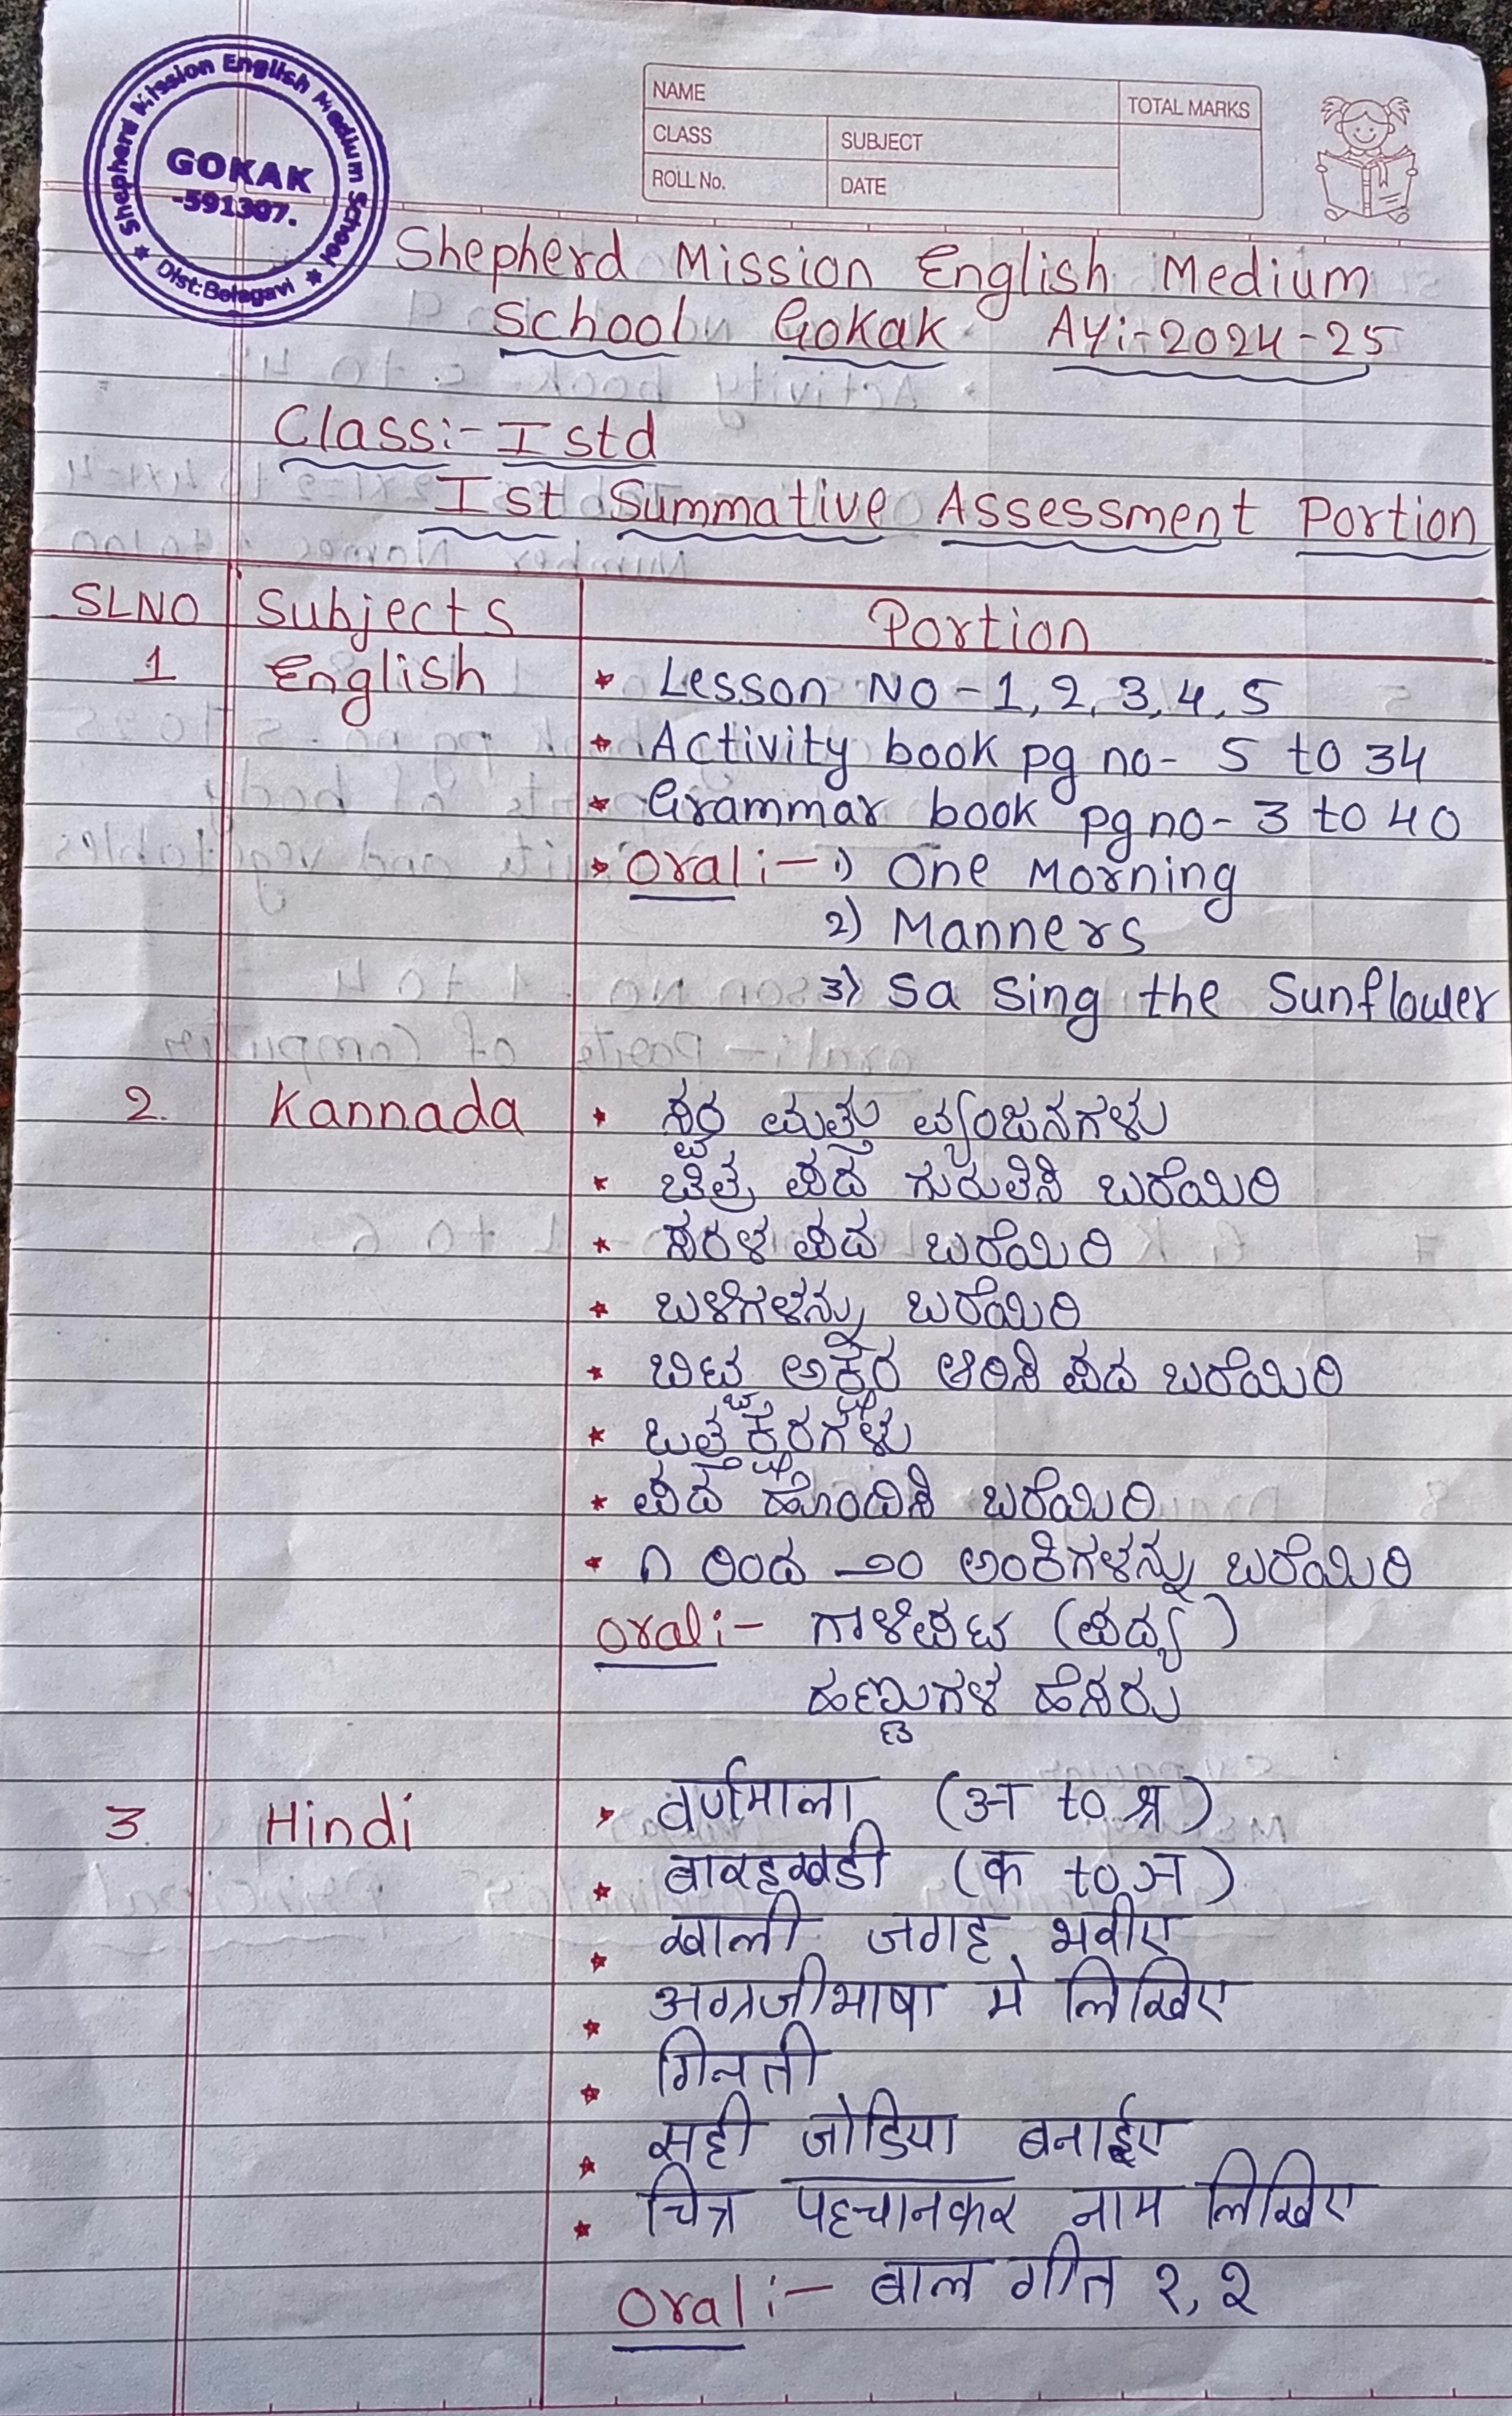 Shepherd Mission English Medium School
GOKAK
-591307.
Dist: Belagavi
NAME
TOTAL MARKS
CLASS
SUBJECT
ROLL No.
DATE
Shepherd Mission English Medium
School Gokak AY:-2024-25
Class:- I std
Ist Summative Assessment Portion
SLNO Subjects Portion
1 English * Lesson NO-1, 2, 3, 4, 5
* Activity book pg no- 5 to 34
* Grammar book pg no- 3 to 40
* Oral:- 1) One Morning
2) Manners
3) Sa Sing the Sunflower
2. Kannada * ಸ್ವರ ಮತ್ತು ವ್ಯಂಜನಗಳು
* ಚಿತ್ರ ಪದ ಗುರುತಿಸಿ ಬರೆಯಿರಿ
* ಸರಳ ಪದ ಬರೆಯಿರಿ
* ಬಳಿಗಳನ್ನು ಬರೆಯಿರಿ
* ಬಿಟ್ಟ ಅಕ್ಷರ ಆರಿಸಿ ಪದ ಬರೆಯಿರಿ
* ಒತ್ತಕ್ಷರಗಳು
* ಪದ ಹೊಂದಿಸಿ ಬರೆಯಿರಿ
* ೧ ರಿಂದ -೨೦ ಅಂಕಿಗಳನ್ನು ಬರೆಯಿರಿ
Oral:- ಗಾಳಿಪಟ (ಪದ್ಯ)
ಹಣ್ಣುಗಳ ಹೆಸರು
3. Hindi * वर्णमाला (अ to श्र)
* बारहखडी (क to ञ)
* खाली जगह भरीए
* अग्रजीभाषा मे लिखिए
* गिनती
* सही जोडिया बनाईए
* चित्र पहचानकर नाम लिखिए
Oral:- बाल गीत १, २